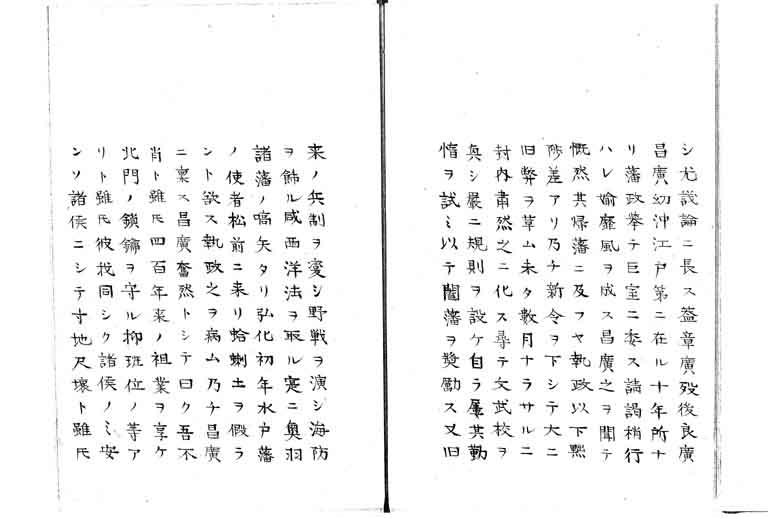 シ尤談論ニ長ス蓋章廣歿後良廣
昌廣幼沖江戸第ニ在ル十年所ナ
リ藩政挙テ巨室ニ委ス請謁稍行
ハレ媮靡風ヲ成ス昌廣之ヲ聞テ
慨然其帰藩ニ及フヤ執政以下黙
陟差アリ乃チ新令ヲ下シテ大ニ
旧弊ヲ革ム未タ數月ナラサルニ
封内肅然之ニ化ス尋テ文武校ヲ
興シ嚴ニ規則ヲ設ケ自ラ屢其勤
惰ヲ試ミ以テ闔藩ヲ奨励ス又旧
来ノ兵制ヲ変シ野戦ヲ演シ海防
ヲ飾ル咸西洋法ヲ取ル寔ニ奥羽
諸藩ノ嚆矢タリ弘化初年水戸藩
ノ使者松前ニ来リ蛤蜊土ヲ假ラ
ント欲ス執政之ヲ病ム乃チ昌廣
ニ稟ス昌廣奮然トシテ曰ク吾不
肖ト雖氏四百年来ノ祖業ヲ享ケ
北門ノ鎖鑰ヲ守ル抑班位ノ等ア
リト雖氏彼我同シク諸侯ノミ安
ンソ諸侯ニシテ寸地尺壌ト雖氏